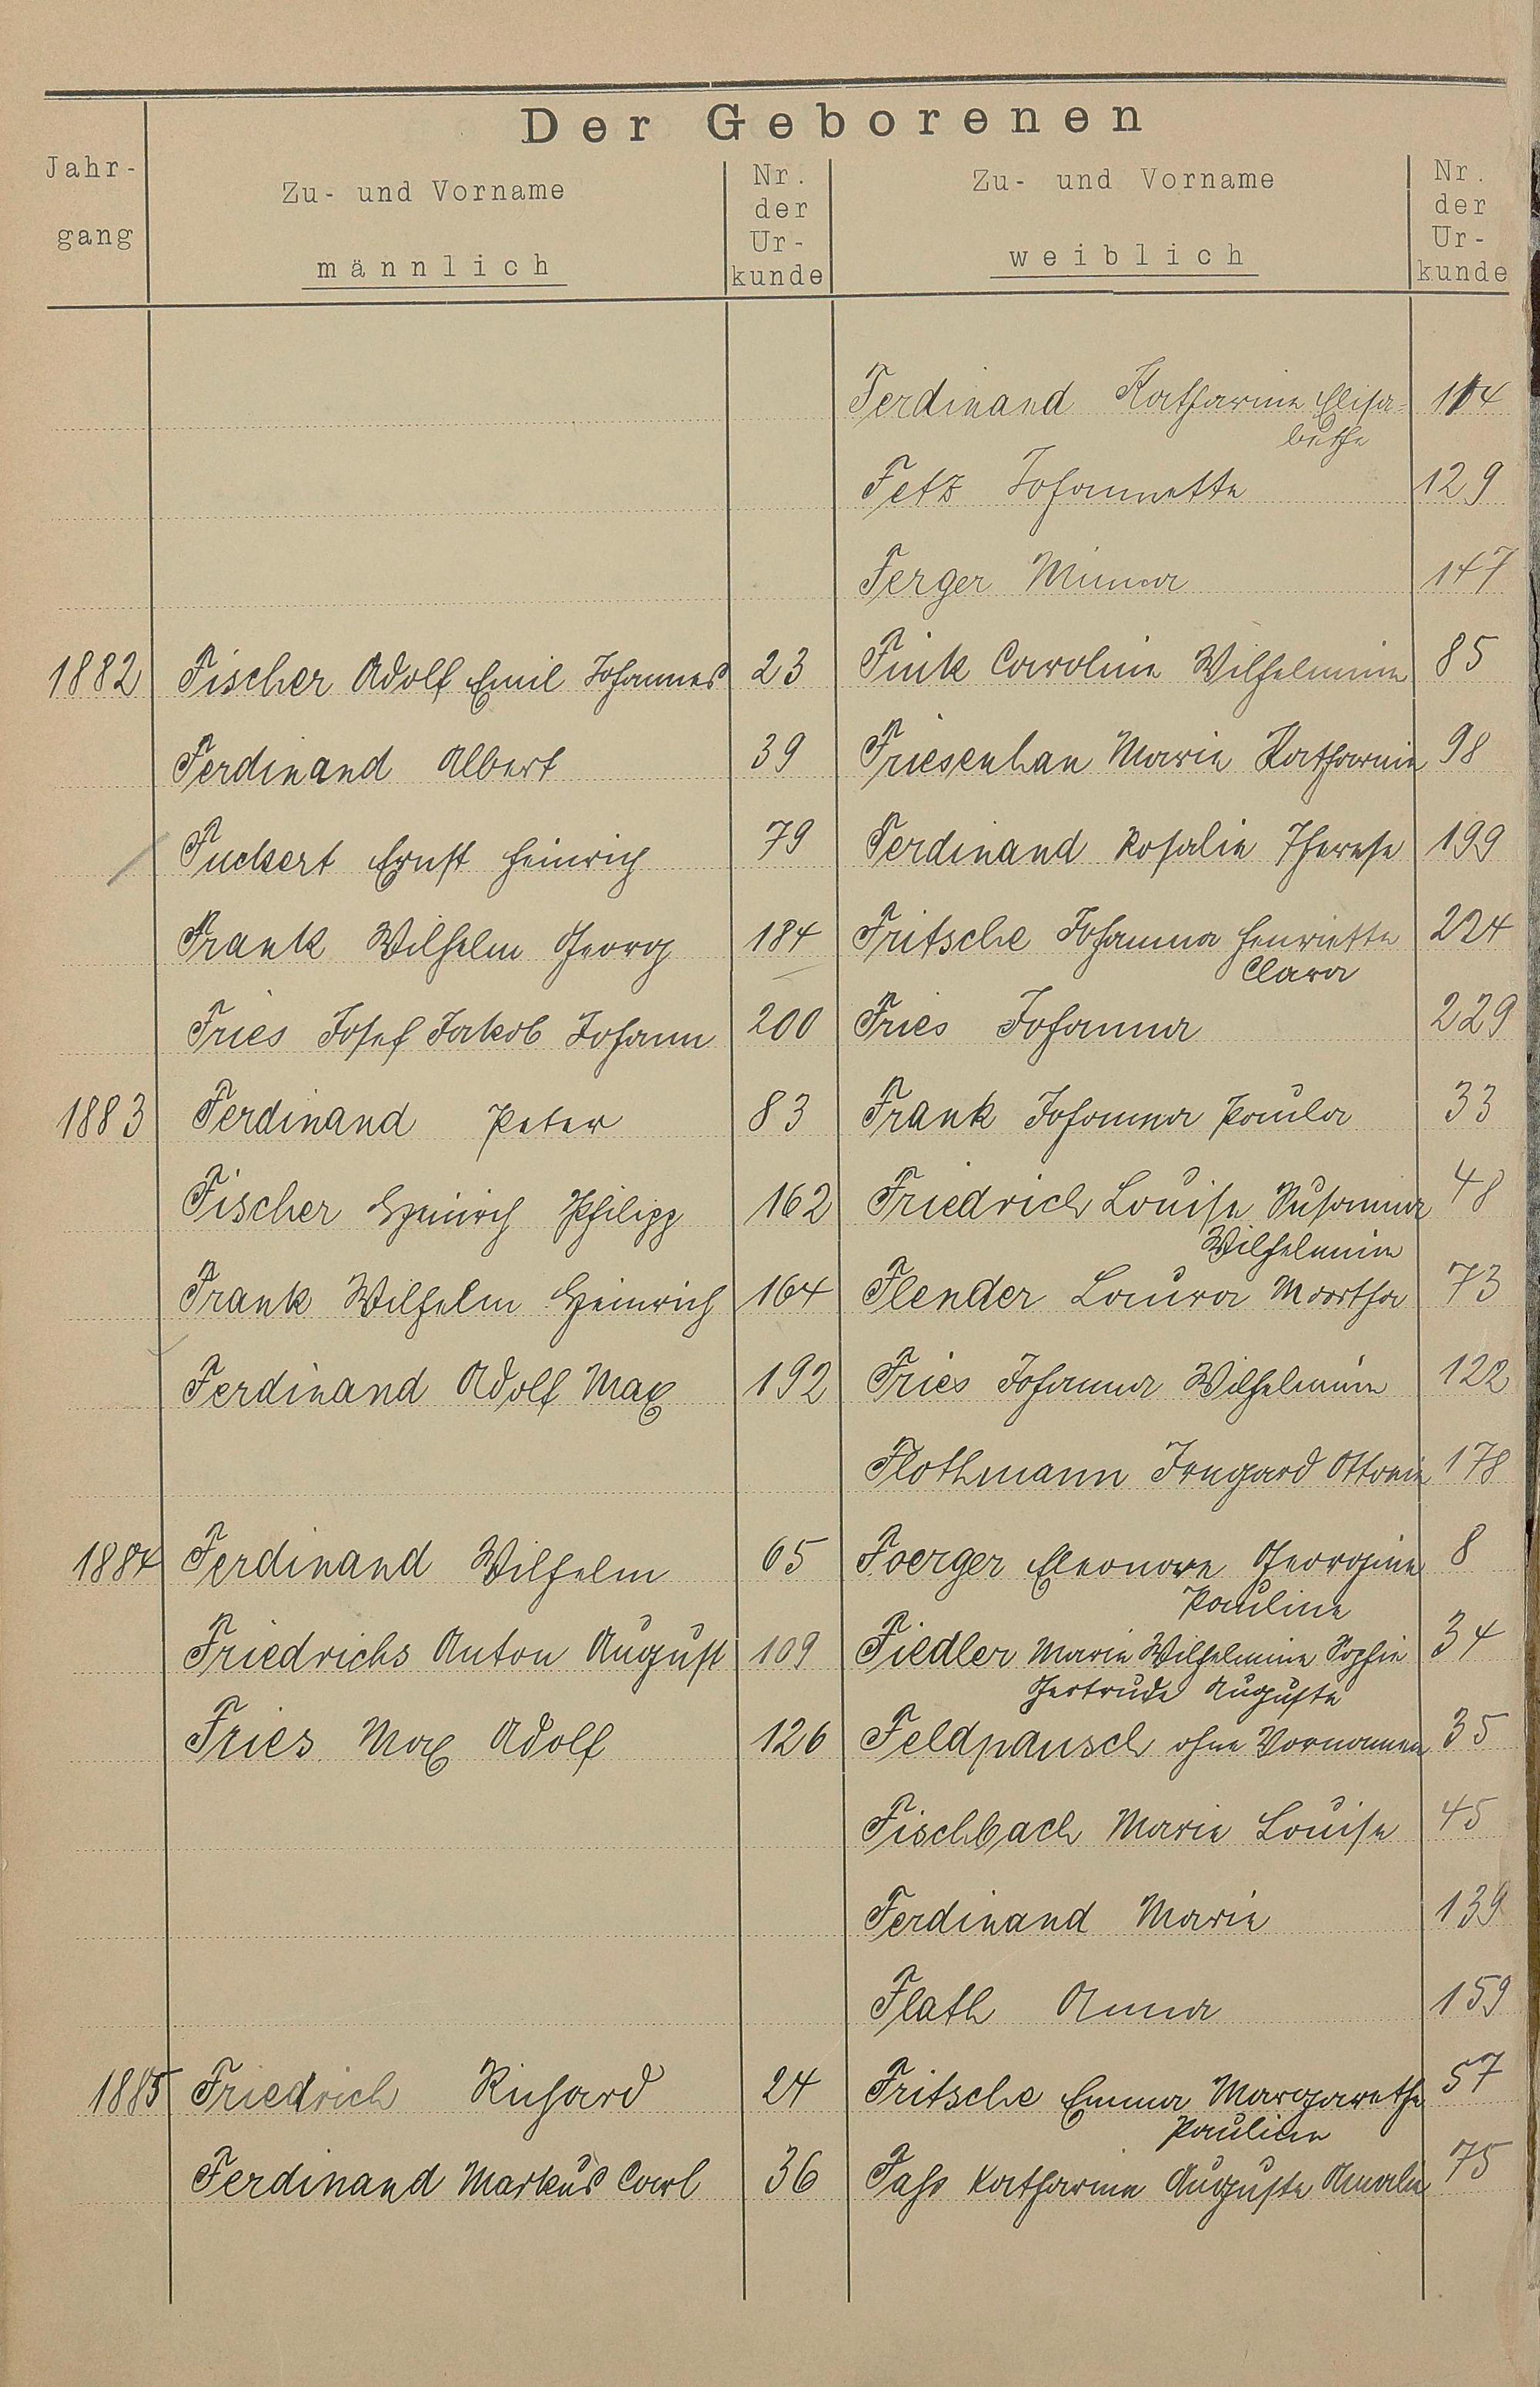 Der Geborenen
Jahr-
gang
Zu- und Vorname
männlich
Nr.
der
Ur-
kunde
Zu- und Vorname
weiblich
Nr.
der
Ur-
kunde
Ferdinand Katharina Elisa- 114
betha
Fetz Johannette 129
Ferger Minna 147
1882 Fischer Adolf Emil Johannes 23 Fink Caroline Wilhelmine 85
Ferdinand Albert 39 Friesenhan Marie Katharine 98
Fuckert Ernst Heinrich 79 Ferdinand Rosalie Therese 199
Frank Wilhelm Georg 184 Fritsche Johanna Henriette 224
Clara
Fries Josef Jakob Johann 200 Fries Johanna 229
1883 Ferdinand Peter 83 Frank Johanna Paula 33
Fischer Heinrich Philipp 162 Friedrich Louise Susanna 48
Wilhelmine
Frank Wilhelm Heinrich 164 Flender Laura Martha 73
Ferdinand Adolf Max 192 Fries Johanna Wilhelmine 122
Flothmann Irmgard Ottonie 178
1884 Ferdinand Wilhelm 65 Foerger Eleonore Georgine 8
Pauline
Friedrichs Anton August 109 Fiedler Marie Wilhelmine Sophie 34
Gertrude Auguste
Fries Max Adolf 126 Feldpausch ohne Vornamen 35
Fischbach Marie Louise 45
Ferdinand Marie 139
Flath Anna 159
1885 Friedrich Richard 24 Fritsche Emma Margarethe 57
Pauline
Ferdinand Markus Carl 36 Katharine Auguste Amalie 75